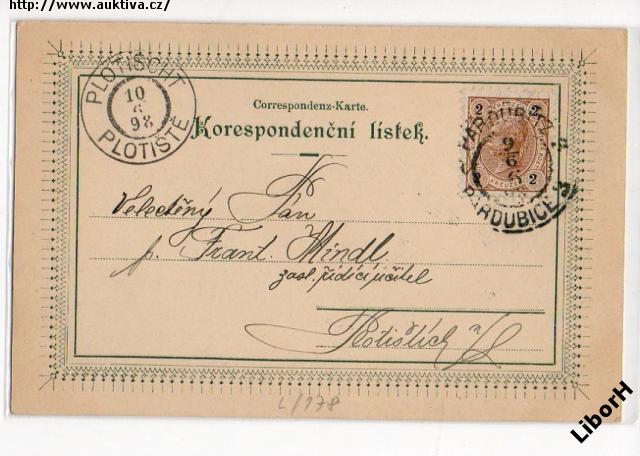 http://www.auktiva.cz/
PLOTISCHT
10
6
93
PLOTIŠTĚ
Correspondenz-Karte.
Korespondenční lístek.
2 2
2 2
9
6
PARDUBICE
Velectěný Pán
p. Frant. Hindl
zasl. řídící učitel
Plotištích n/L
L/178
LiborH